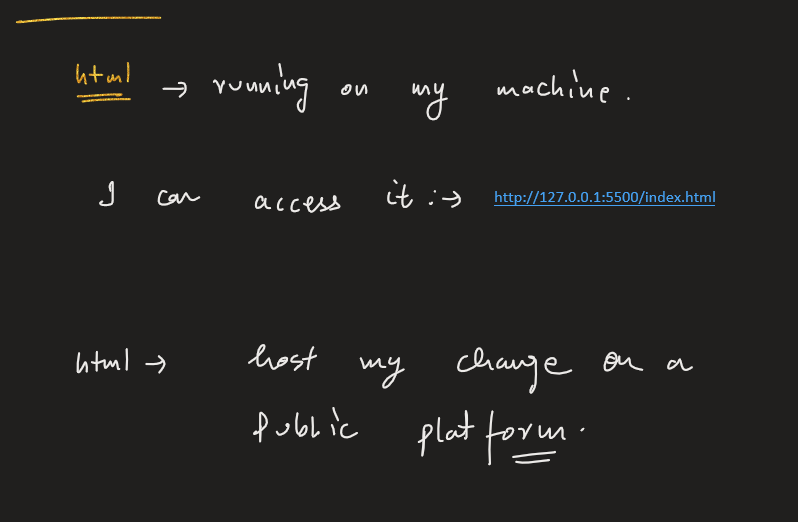 html → running on my machine.
I can access it :→ http://127.0.0.1:5500/index.html
html → host my change on a
public platform.